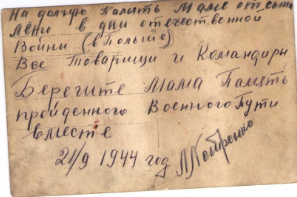 На долгую Память Маме от сына
Лени в дни отечественной
Войны (в Польше)
Все Товарищи и Командиры
Берегите Мама Память
пройденного Военного Пути
вместе
21/9 1944 год